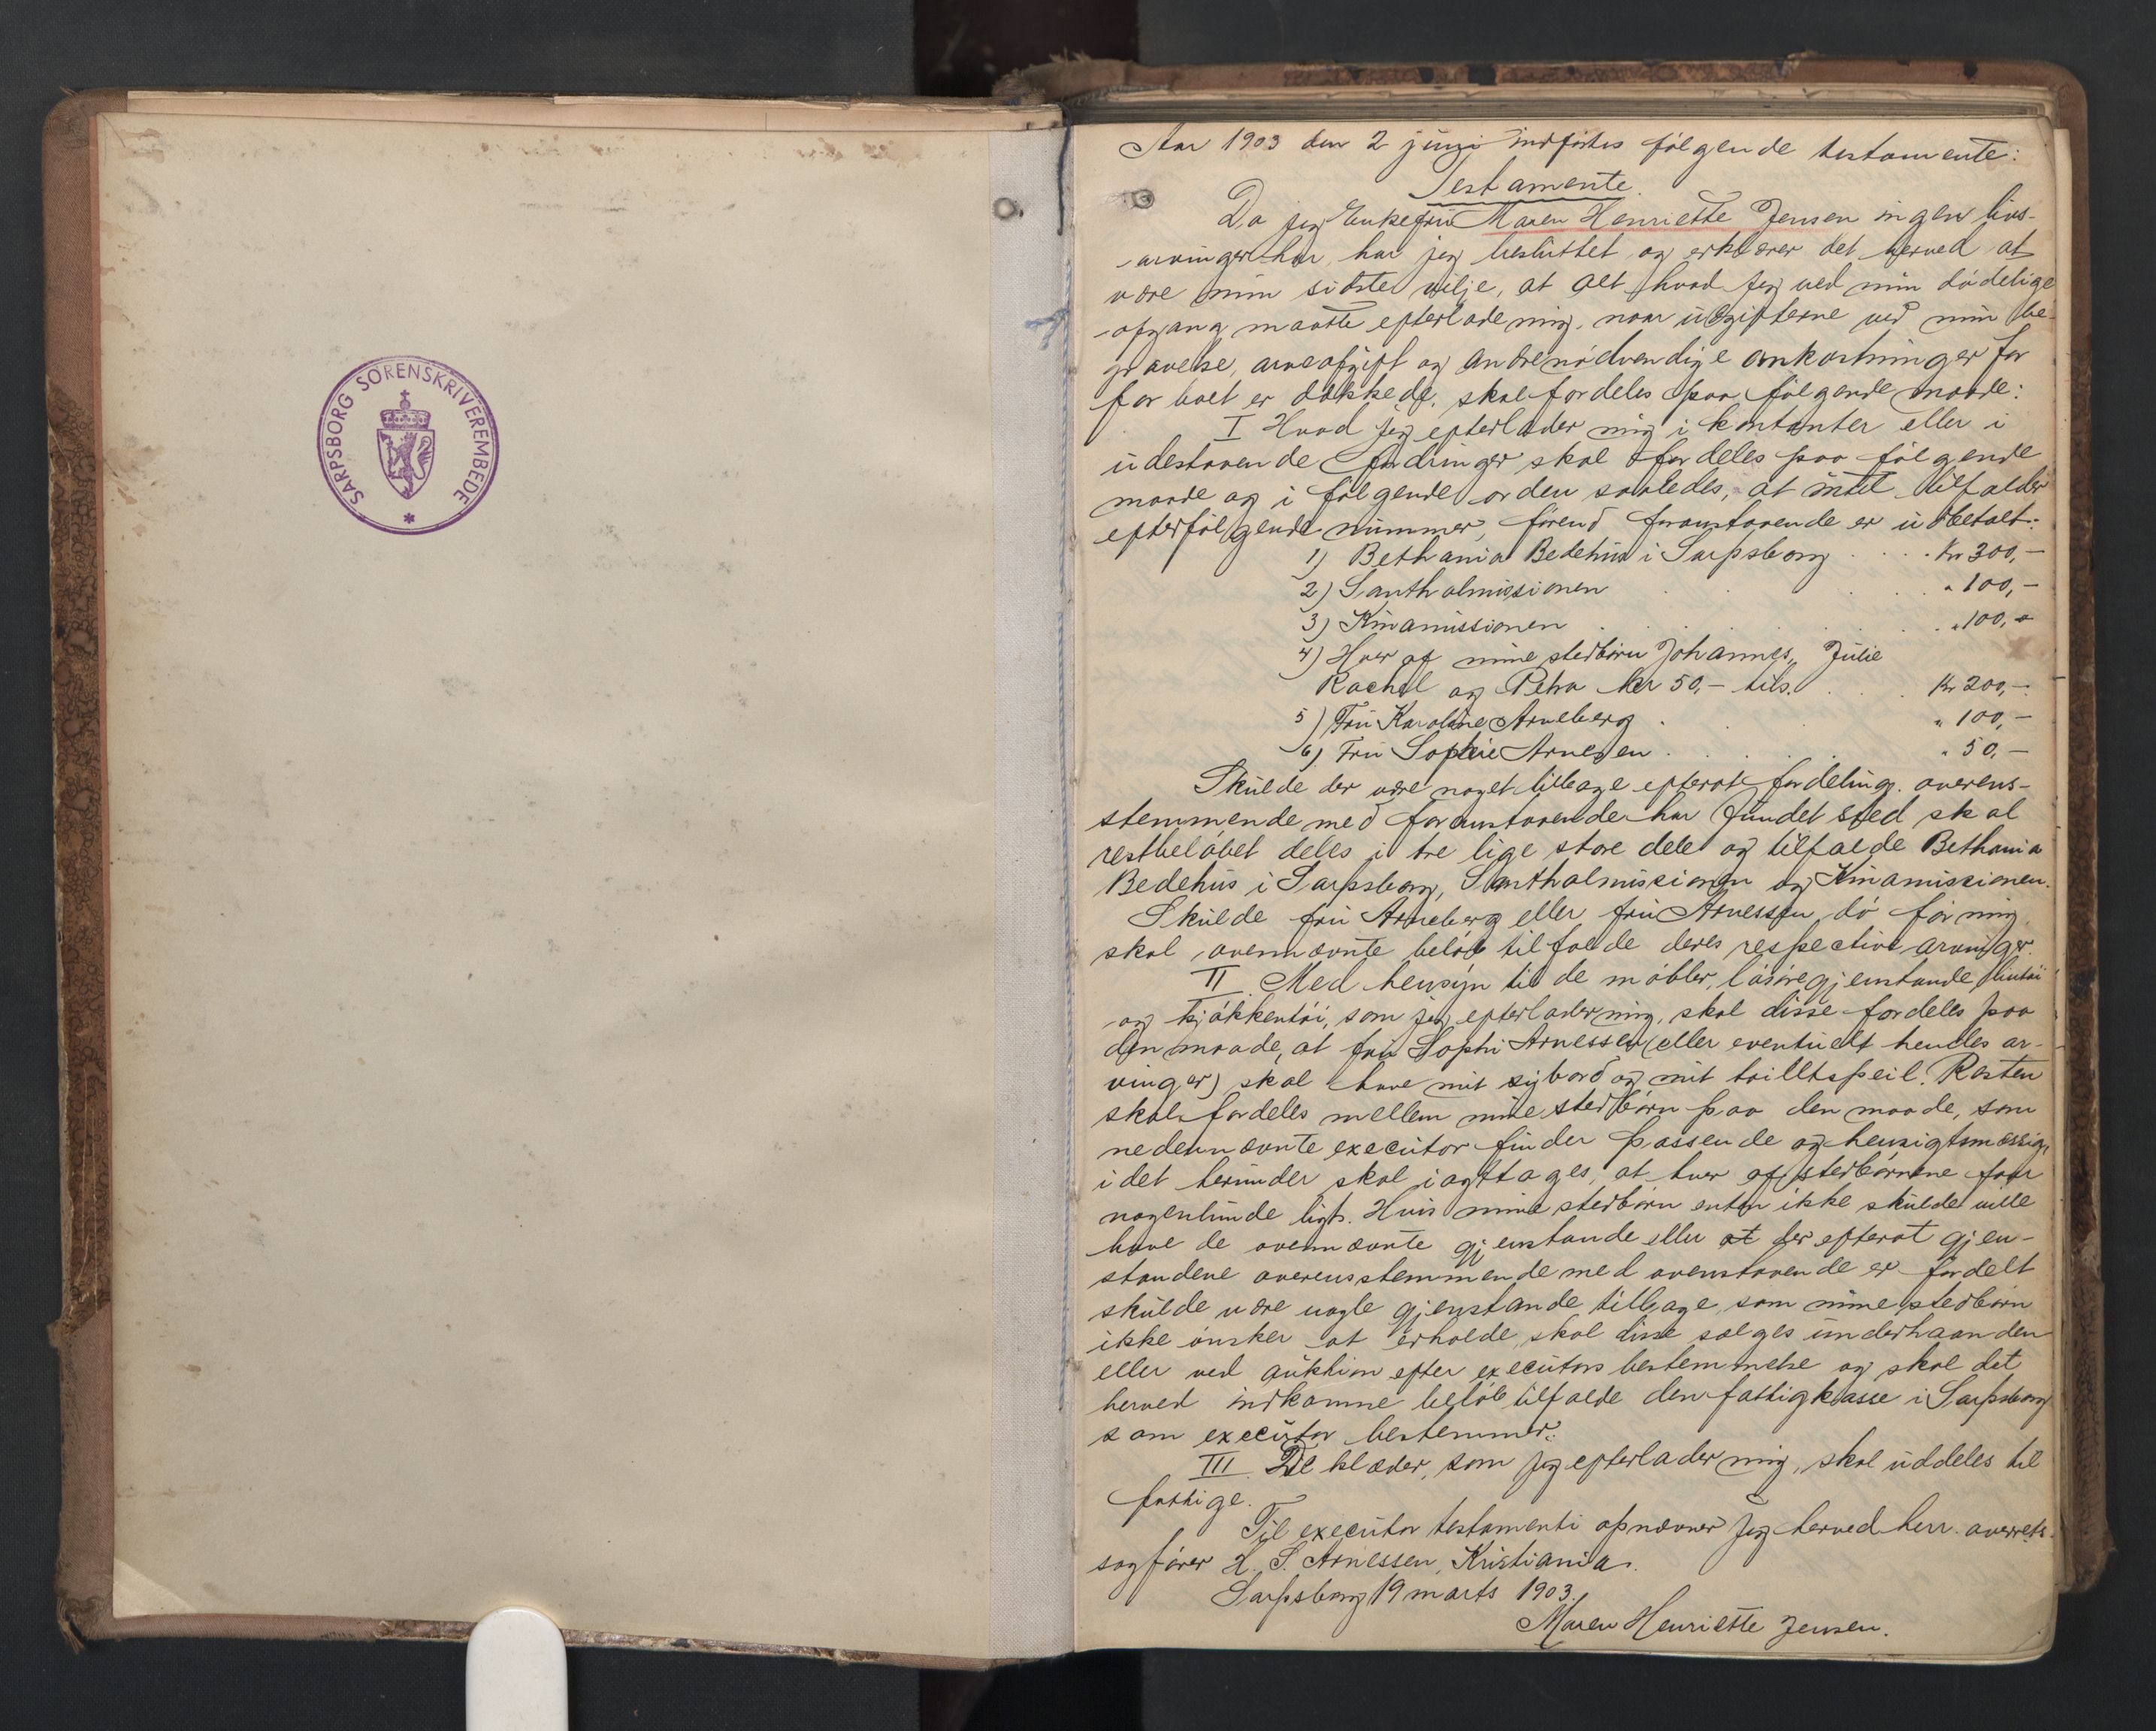 SARPSBORG SORENSKRIVEREMBEDE
Aar 1903 den 2 juni indførtes følgende testamente:
Testamente.
Da jeg Enkefru Maren Henriette Jensen ingen livs-
arvinger har, har jeg besluttet og erklærer det herved at
være min sidste vilje, at alt hvad jeg ved min dødelige
afgang maatte efterlade mig, naar udgifterne ved min be-
gravelse, arveafgift og andre nødvendige omkostninger for
for boet er dækkede, skal fordeles paa følgende maade:
I Hvad jeg efterlader mig i kontanter eller i
udestaaende fordringer skal fordeles paa følgende
maade og i følgende orden saaledes, at intet tilfalder
efterfølgende nummer, førend foranstaaende er udbetalt:
1) Bethania Bedehus i Sarpsborg . . . . Kr 300,-
2) Santhalmissionen . . . . " 100,-
3) Kinamissionen . . . . " 100,-
4) Hver af mine stedbørn Johannes, Julie
Rachel og Petra kr 50,- tils. . . Kr 200,-
5) Fru Karoline Arneberg . . " 100,-
6) Fru Sophie Arnesen . . . . " 50,-
Skulde der være noget tilbage efterat fordeling overens-
stemmende med foranstaaende har fundet sted skal
restbeløbet deles i tre lige store dele og tilfalde Bethania
Bedehus i Sarpsborg, Santhalmissionen og Kinamissionen.
Skulde fru Arneberg eller fru Arnessen dø før mig
skal ovennævnte beløb tilfalde deres respective arvinger.
II Med hensyn til de møbler, løsøregjenstande, lintøi
og kjøkkentøi, som jeg efterlader mig, skal disse fordeles paa
den maade, at fru Sophi Arnessen (eller eventuelt hendes ar-
vinger) skal have mit sybord og mit toilltspeil. Resten
skal fordeles mellem mine stedbørn paa den maade, som
nedennævnte executor finder passende og hensigtsmæssig,
idet herunder skal iagttages, at hver af stedbørnene faar
nogenlunde ligt. Hvis mine stedbørn enten ikke skulde ville
have de ovennævnte gjenstande eller at der efterat gjen-
standene overensstemmende med ovenstaaende er fordelt
skulde være nogle gjenstande tilbage, som mine stedbørn
ikke ønsker at erholde, skal disse sælges underhaanden
eller ved auktion efter executors bestemmelse og skal det
herved indkomne beløb tilfalde den fattigkasse i Sarpsborg
som executor bestemmer.
III De klæder, som jeg efterlader mig, skal uddeles til
fattige.
Til executor testamenti opnævner jeg herved herr. overrets-
sagfører H. S. Arnessen, Kristiania.
Sarpsborg 19 marts 1903.
Maren Henriette Jensen.